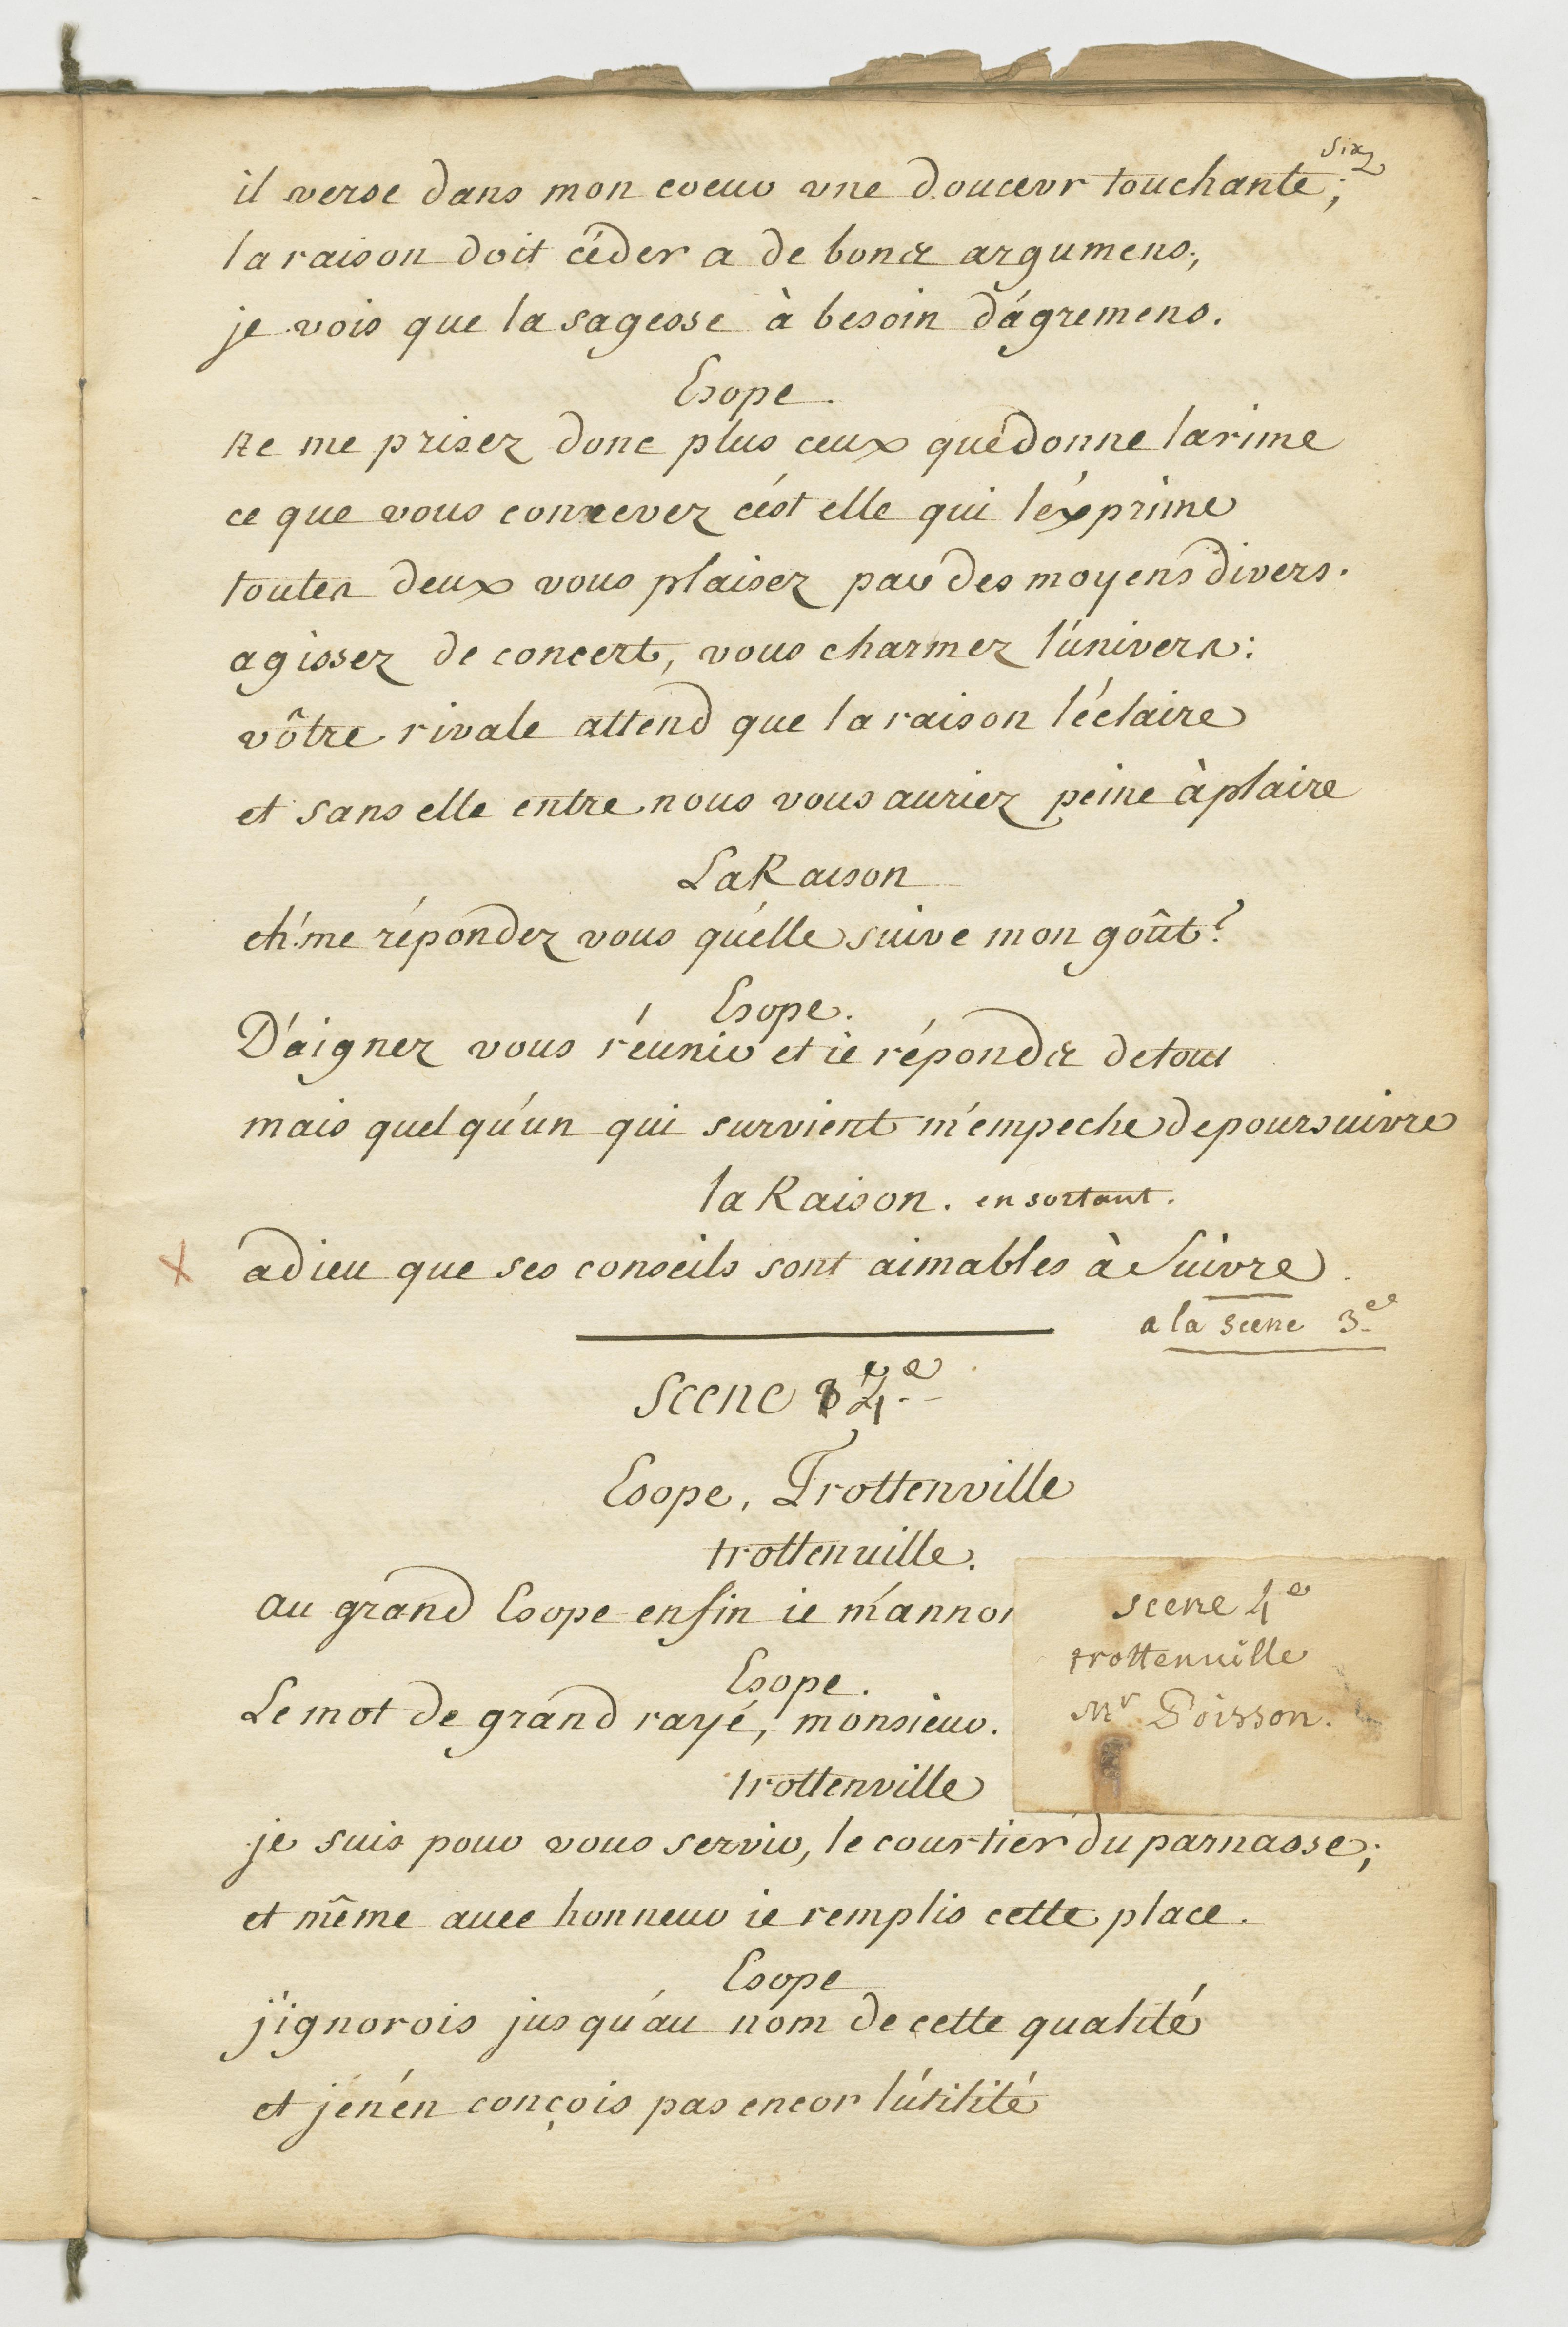 six
il verse dans mon coeur une douceur touchante;
la raison doit céder a de bons argumens;
je vois que la sagesse à besoin d'ágremens.
Esope.
ne me prisez donc plus ceux que donne la rime
ce que vous concevez c'ést elle qui l'éxprime
toutes deux vous plaisez par des moyens divers.
agissez de concert, vous charmez l'univers:
vôtre rivale attend que la raison l'éclaire
et sans elle entre nous vous auriez peine à plaire
La Raison
eh! me répondez vous qu'élle suive mon goût?
Esope.
D'aignez vous réunir et ie réponds de tout
mais quelqu'un qui survient m'empeche de poursuivre
la Raison. en sortant.
x adieu que ses conseils sont aimables à Suivre.
a la scene 3e
Scene 4e
Esope, Trottenville
trottenuille.
au grand Esope enfin ie m'anno
Esope.
Le mot de grand rayé, monsieur.
trottenville
scene 4e
trottenuille
Mr Poisson.
je suis pour vous servir, le courtier du parnasse;
et même avec honneur ie remplis cette place.
Esope
j'ignorois jusqu'áu nom de cette qualité
et jén'én conçois pas encor l'útilité